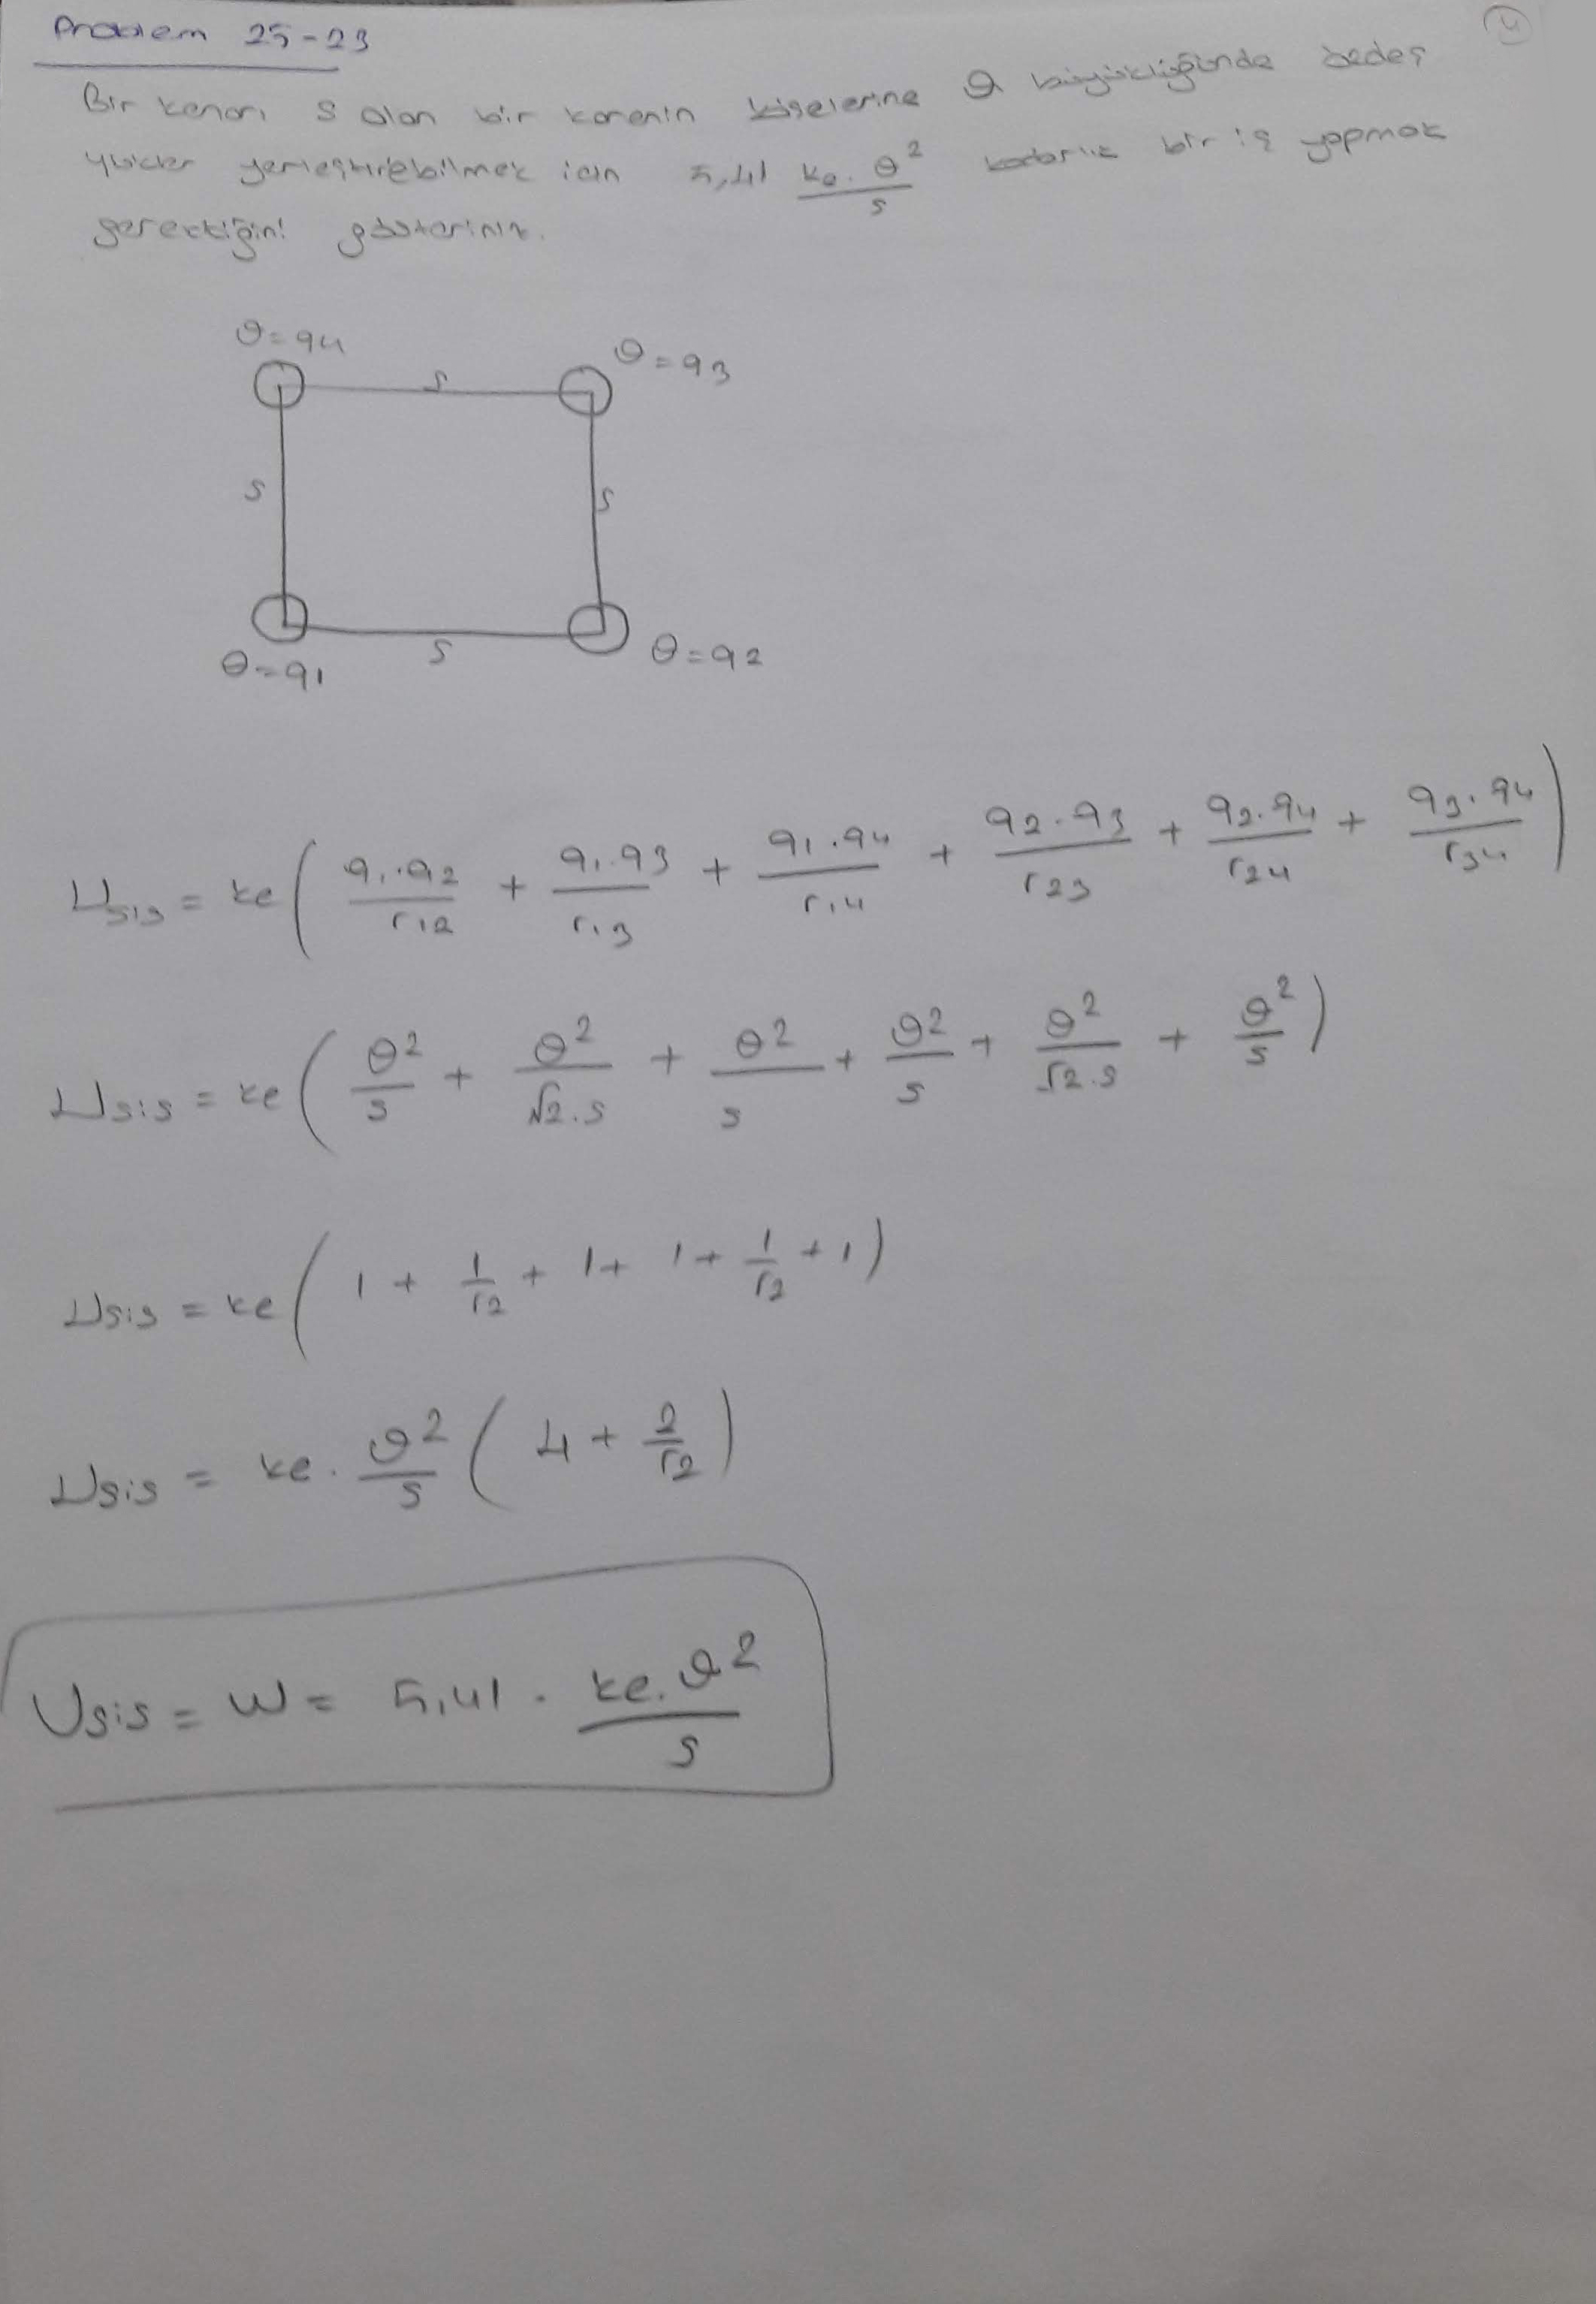 Problem 25-23
4
Bir kenarı s olan bir karenin köşelerine Q büyüklüğünde özdeş
yükler yerleştirebilmek için 5,41 ke.Q²/s kadarlık bir iş yapmak
gerektiğini gösteriniz.
Q=q4
Q=q3
s
s
s
s
Q=q1
Q=q2
Usis = ke( q1.q2/r12 + q1.q3/r13 + q1.q4/r14 + q2.q3/r23 + q2.q4/r24 + q3.q4/r34 )
Usis = ke( Q²/s + Q²/√2.s + Q²/s + Q²/s + Q²/√2.s + Q²/s )
Usis = ke( 1 + 1/√2 + 1 + 1 + 1/√2 + 1 )
Usis = ke. Q²/s ( 4 + 2/√2 )
Usis = W = 5,41 . ke.Q²/s